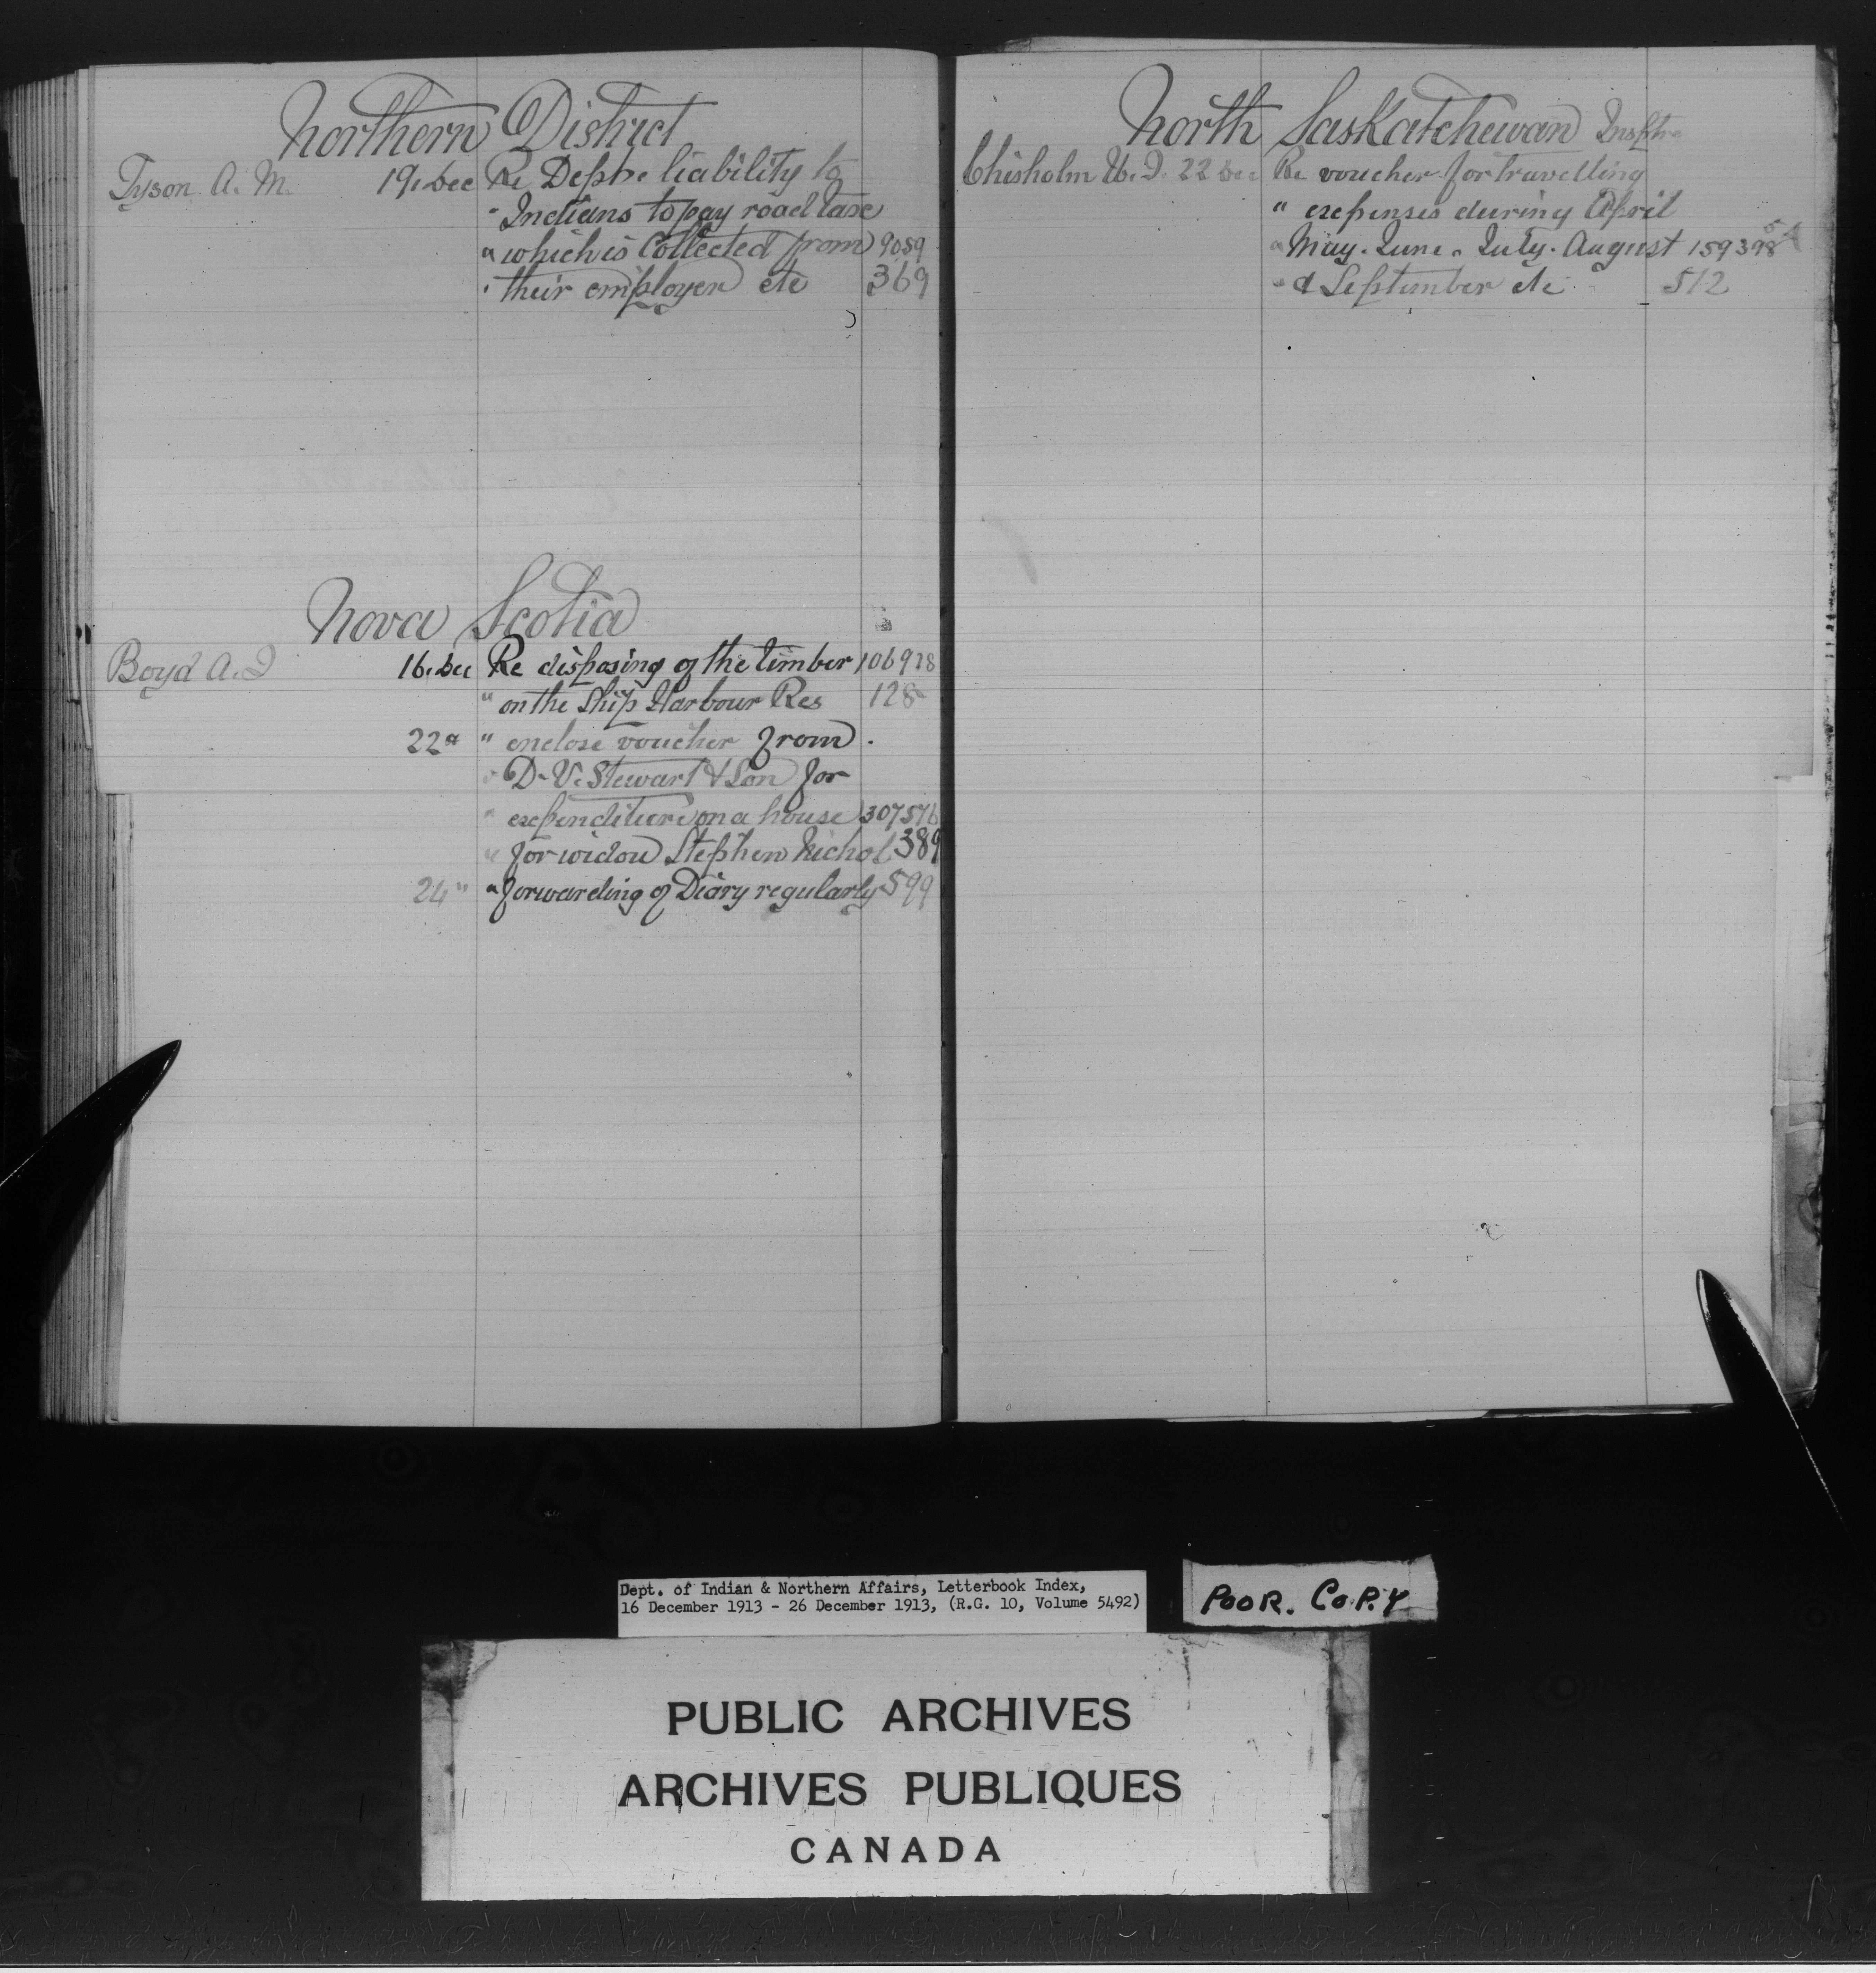 Northern District
Tyson A. M. 19. Dec Re Deptre liability to
" Indians to pay road taxe
" which is Collected from 9059
" their employer etc 369
Nova Scotia
Boyd A. J 16. Dec Re disposing of the timber 106928
" on the Ship Harbour Res 128
22 " " enclose voucher from
" D. V. Stewart & Son for
" expenditure on a house 307576
" for widow Stephen Nichol 389
24 " " forwarding of Diary regularly 599
North Saskatchewan Insptre
Chisholm W. J. 22 Dec Re voucher for travelling
" expenses during April
" May. June. July. August 159398
" & September etc 512
Dept. of Indian & Northern Affairs, Letterbook Index,
16 December 1913 - 26 December 1913, (R.G. 10, Volume 5492)
POOR. COPY
PUBLIC ARCHIVES
ARCHIVES PUBLIQUES
CANADA